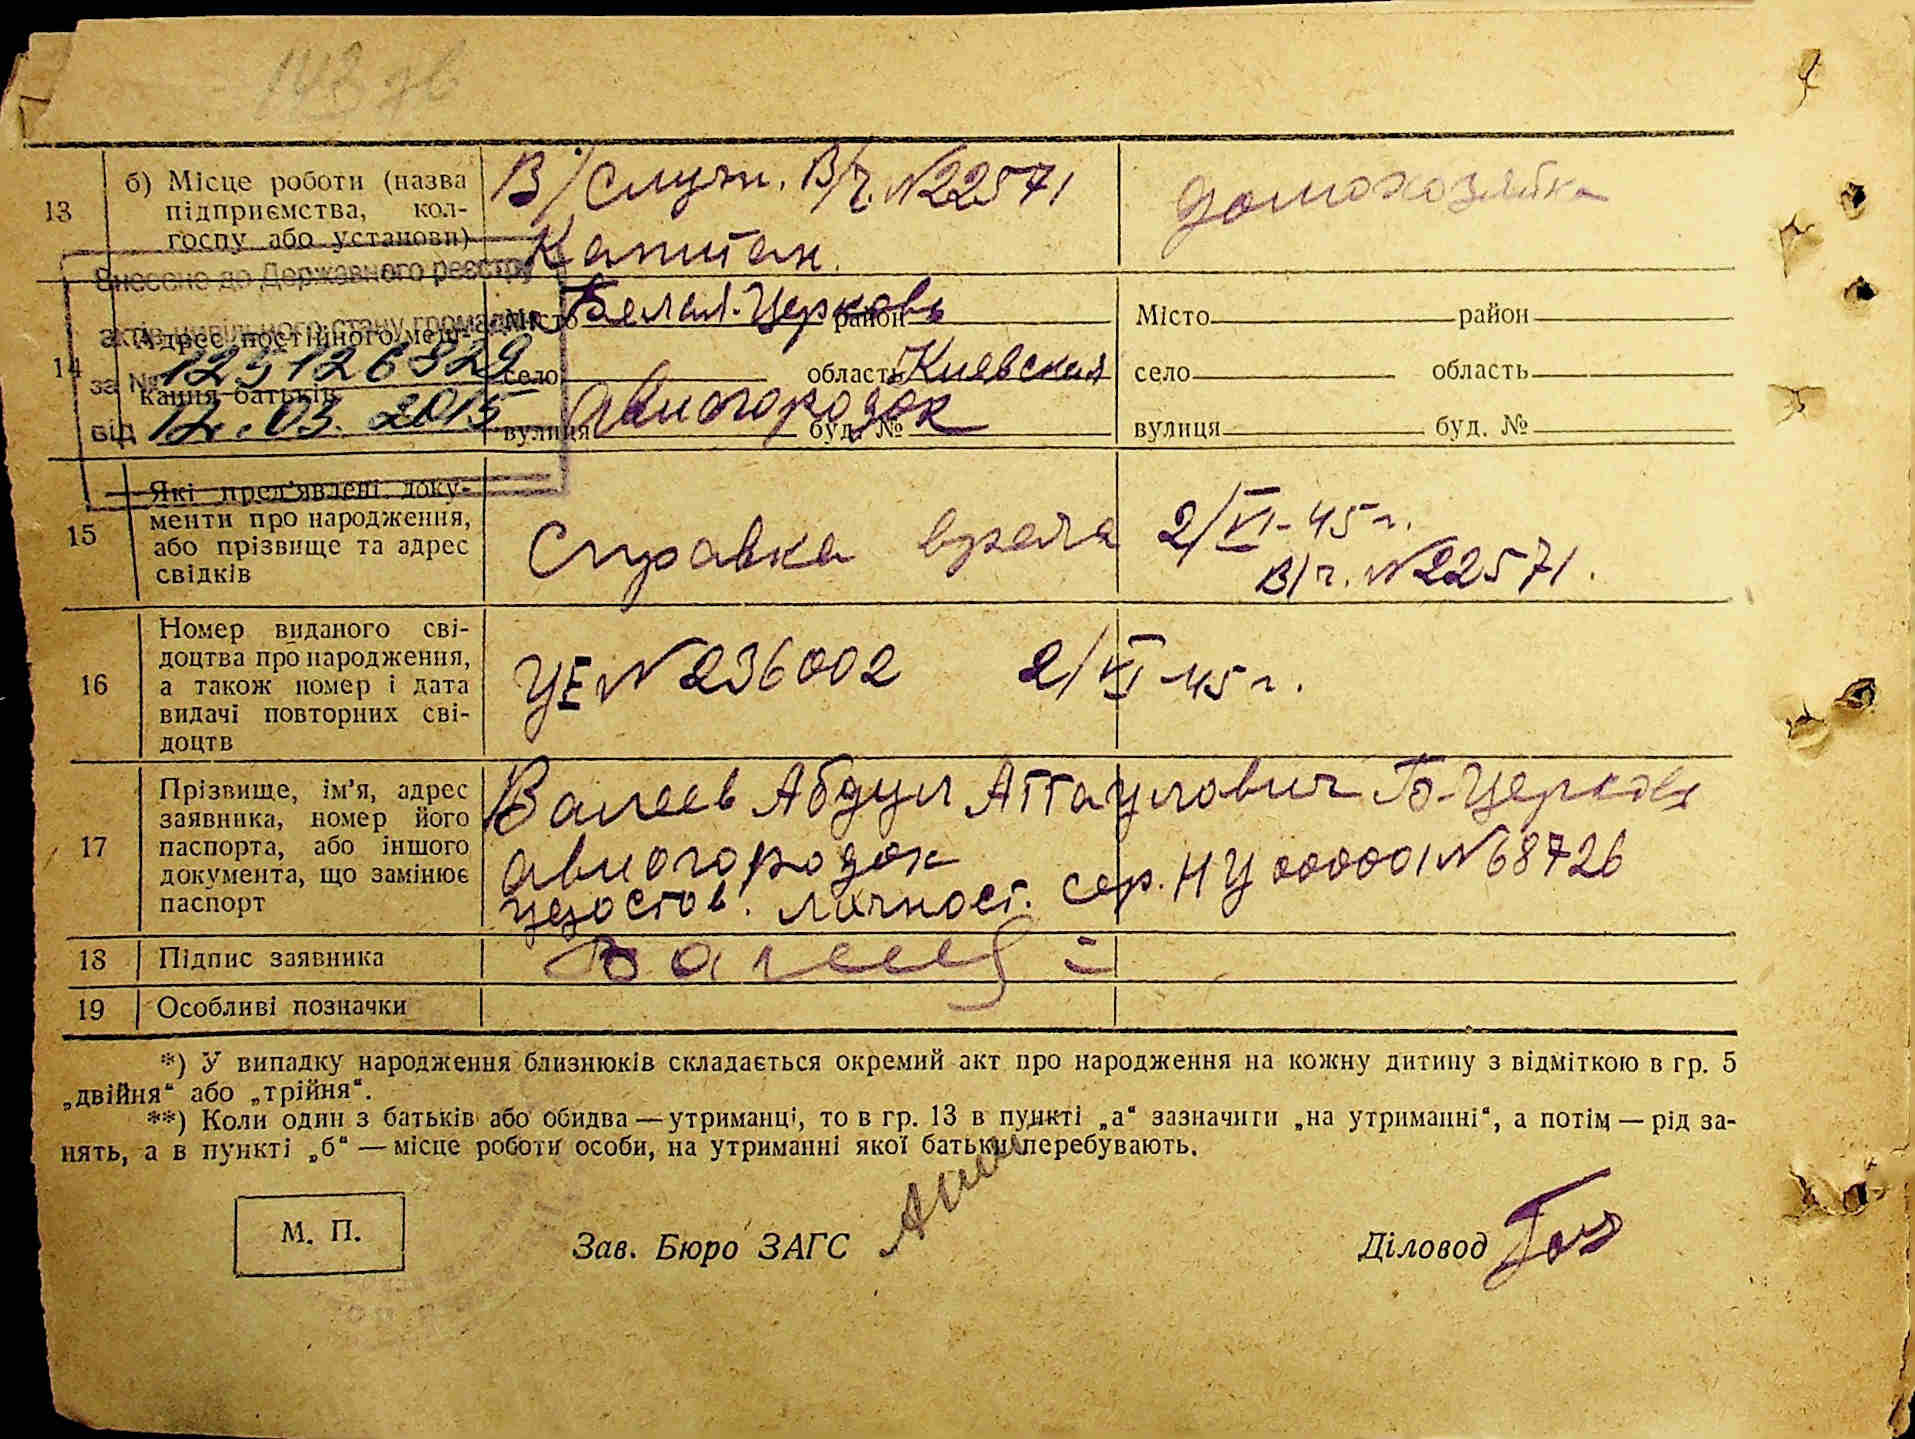 143 зв
13
б) Місце роботи (назва
підприємства, кол-
госпу або установи)
В/служ. В/ч. №22571
Капитан.
домохозяйка
Внесено до Державного реєстру
актів цивільного стану громадян
за № 125126829
від 12.03.2015
14
Адрес постійного меш-
кання батьків
Місто Белая-Церковь район
село область Киевская
вулиця Авиогородок буд. №
Місто район
село область
вулиця буд. №
15
Які пред'явлені доку-
менти про народження,
або прізвище та адрес
свідків
Справка врача 2/VI-45 г.
В/ч. №22571.
16
Номер виданого сві-
доцтва про народження,
а також номер і дата
видачі повторних сві-
доцтв
УЕ №236002 2/VI-45 г.
17
Прізвище, ім'я, адрес
заявника, номер його
паспорта, або іншого
документа, що замінює
паспорт
Валеев Абдул Аттаулович Б-Церковь
Авиогородок
удостов. личност. сер. НУ 000001 №68726
18
Підпис заявника
Валеев
19
Особливі позначки
*) У випадку народження близнюків складається окремий акт про народження на кожну дитину з відміткою в гр. 5
„двійня“ або „трійня“.
**) Коли один з батьків або обидва — утриманці, то в гр. 13 в пункті „а“ зазначити „на утриманні“, а потім — рід за-
нять, а в пункті „б“ — місце роботи особи, на утриманні якої батьки перебувають.
М. П.
Зав. Бюро ЗАГС
Діловод